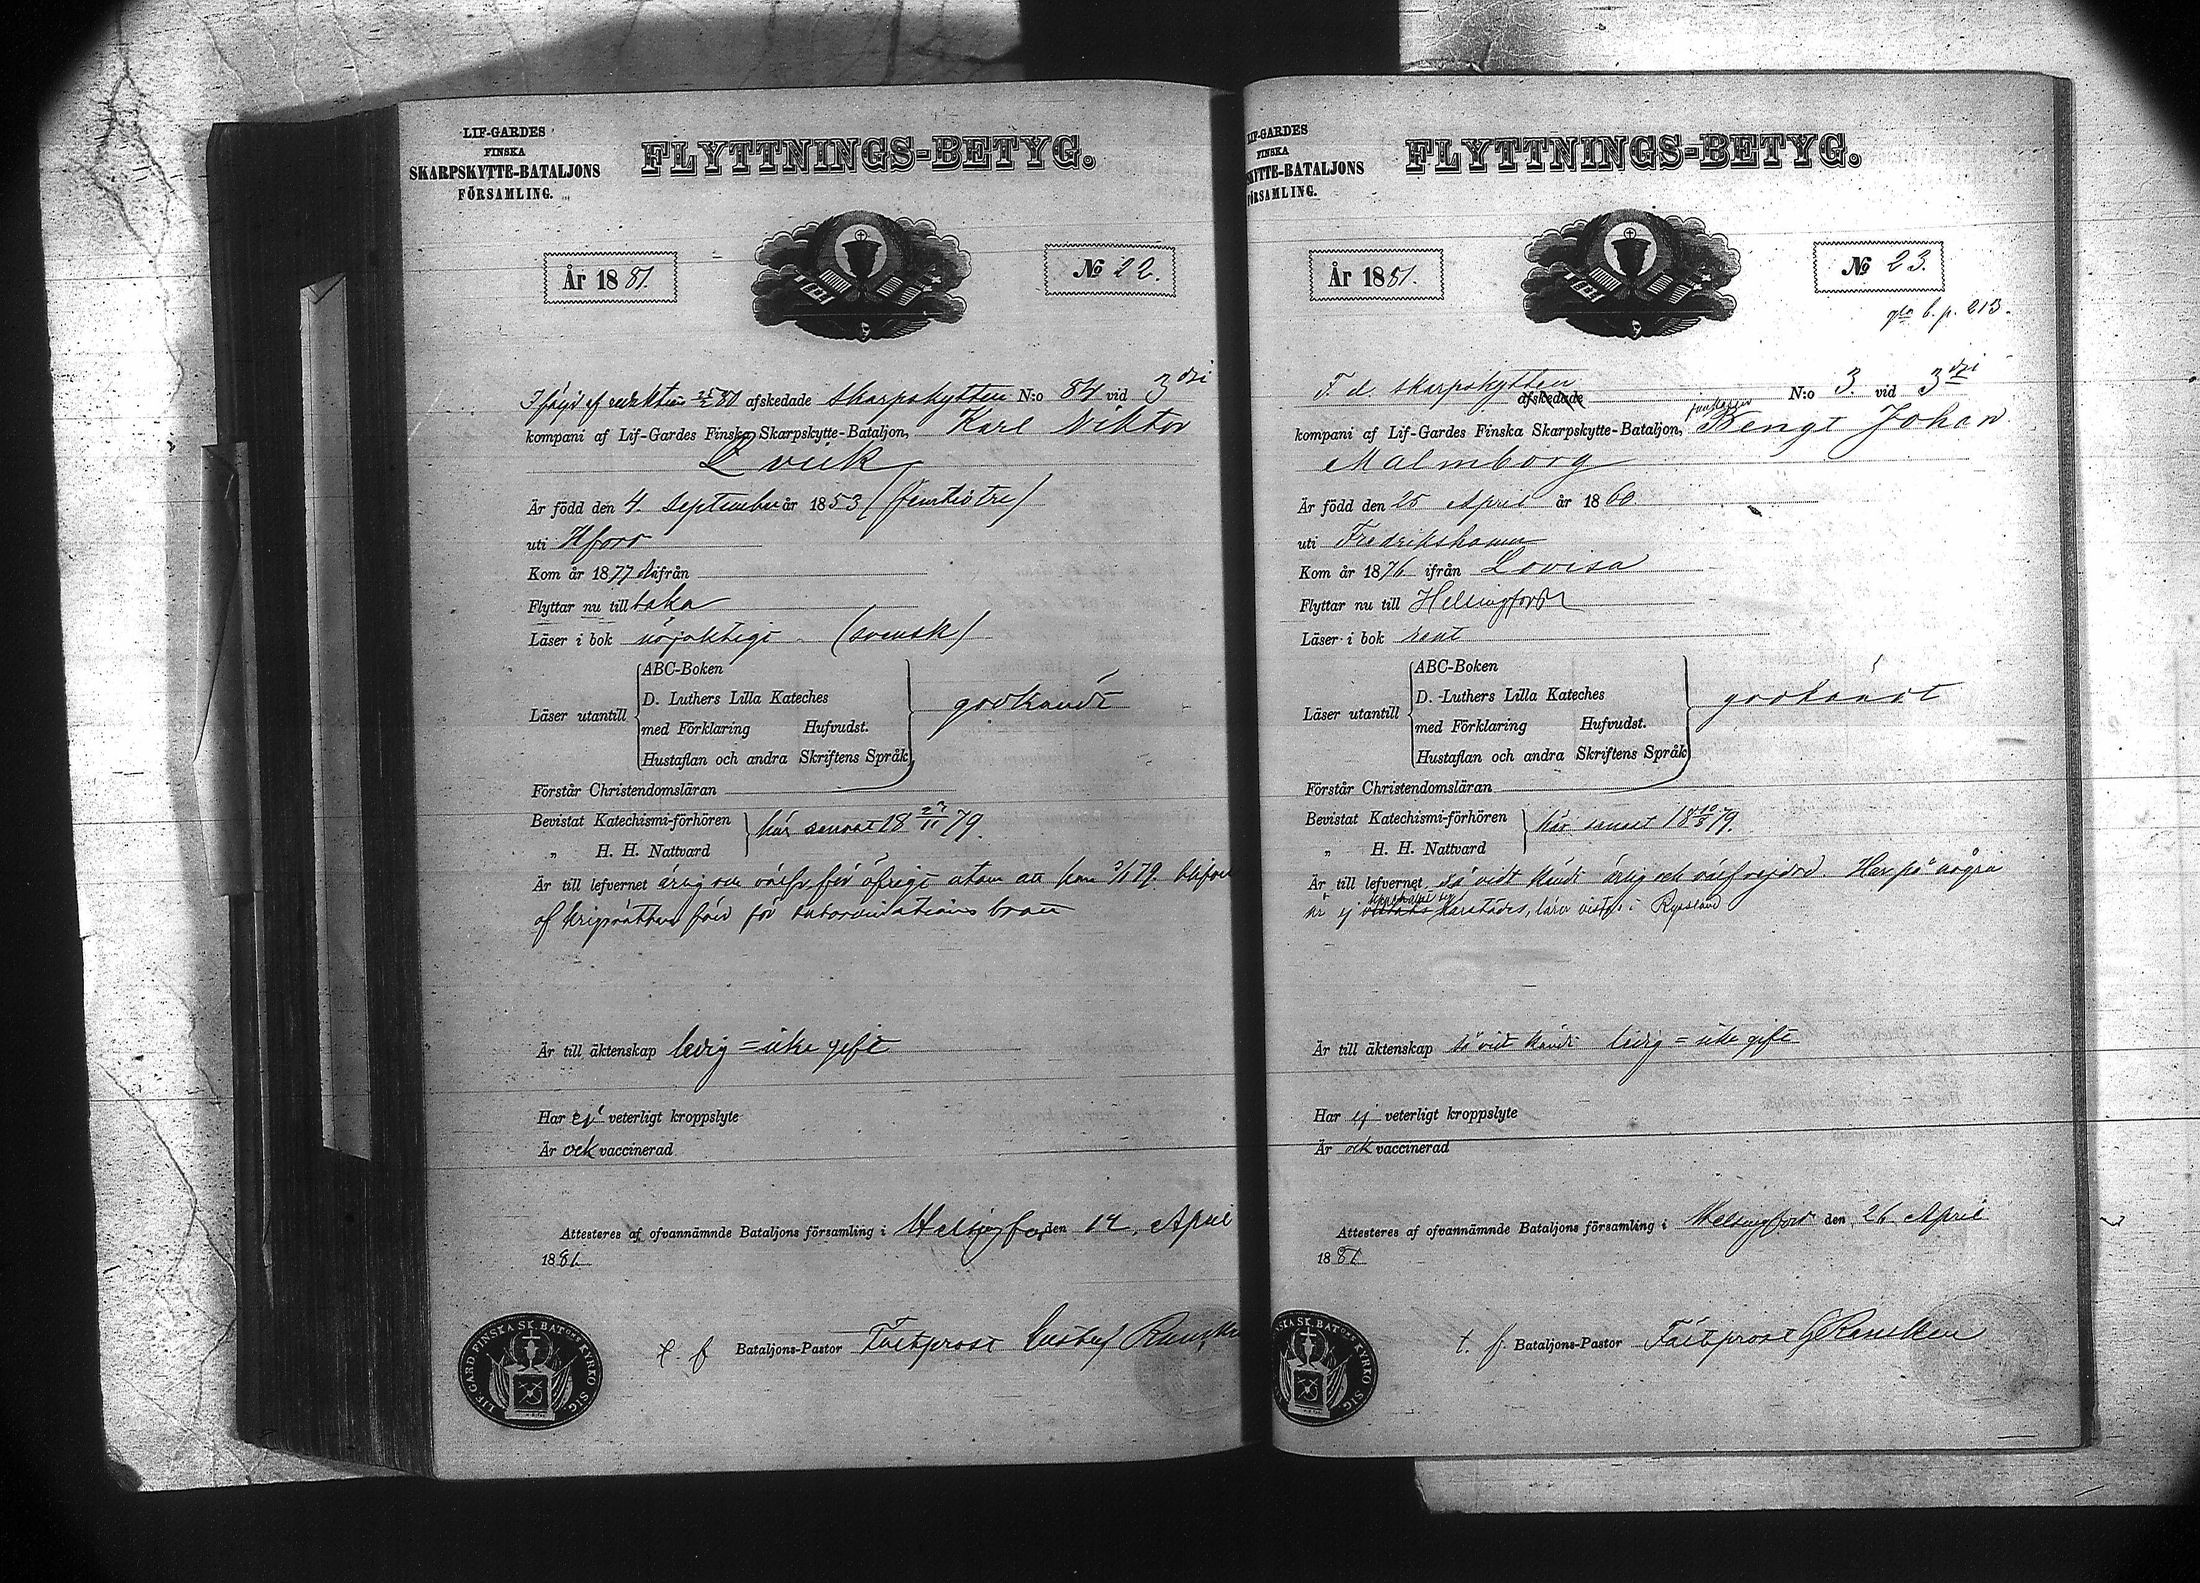 LIF-GARDES
FINSKA
SKARPSKYTTE-BATALJONS
FÖRSAMLING.
FLYTTNINGS-BETYG.
År 1881.
No 22.
I följd af afskedade Skarpskytten N:o 84 vid 3dje
kompani af Lif-Gardes Finska Skarpskytte-Bataljon, Karl Viktor
Är född den 4. September år 1853 (femtiotre)
uti Hfors
Kom år 1877 ifrån
Flyttar nu till baka
Läser i bok nöjaktigt (svensk)
Läser utantill
ABC-Boken
D. Luthers Lilla Kateches
med Förklaring Hufvudst.
Hustaflan och andra Skriftens Språk
godkändt
Förstår Christendomsläran
Bevistat Katechismi-förhören
„ H. H. Nattvard
här senast 18 23/11 79.
Är till lefvernet ärlig och för öfrigt utom att han 79. blifvit
af krigsrätten för subordinations brott
Är till äktenskap ledig = icke gift
Har ej veterligt kroppslyte
Är ock vaccinerad
Attesteres af ofvannämnde Bataljons församling i Helsingfors den 14. April
1881.
t. f. Bataljons-Pastor Fältprost Gustaf
LIF-GARD FINSKA SK. BATONS KYRKO SIG.
LIF-GARDES
FINSKA
SKYTTE-BATALJONS
FÖRSAMLING.
FLYTTNINGS-BETYG.
År 1881.
No 23.
b. p. 213.
F. d. skarpskytten afskedade N:o 3. vid 3dje
kompani af Lif-Gardes Finska Skarpskytte-Bataljon, Bengt Johan
Malmborg
Är född den 25 April år 1860
uti Fredrikshamn
Kom år 1876 ifrån Lovisa
Flyttar nu till Helsingfors
Läser i bok rent
Läser utantill
ABC-Boken
D. Luthers Lilla Kateches
med Förklaring Hufvudst.
Hustaflan och andra Skriftens Språk
godkändt
Förstår Christendomsläran
Bevistat Katechismi-förhören
„ H. H. Nattvard
här senast 18 10/8 79.
Är till lefvernet så vidt kändt ärlig och välfrejdad. Har på några
år ej härstädes, lärer vistas i Ryssland
Är till äktenskap så vidt kändt ledig = icke gift
Har ej veterligt kroppslyte
Är ock vaccinerad
Attesteres af ofvannämnde Bataljons församling i Helsingfors den 26 April
1881
t. f. Bataljons-Pastor Fältprost G
SKA SK. BATONS KYRKO SIG.